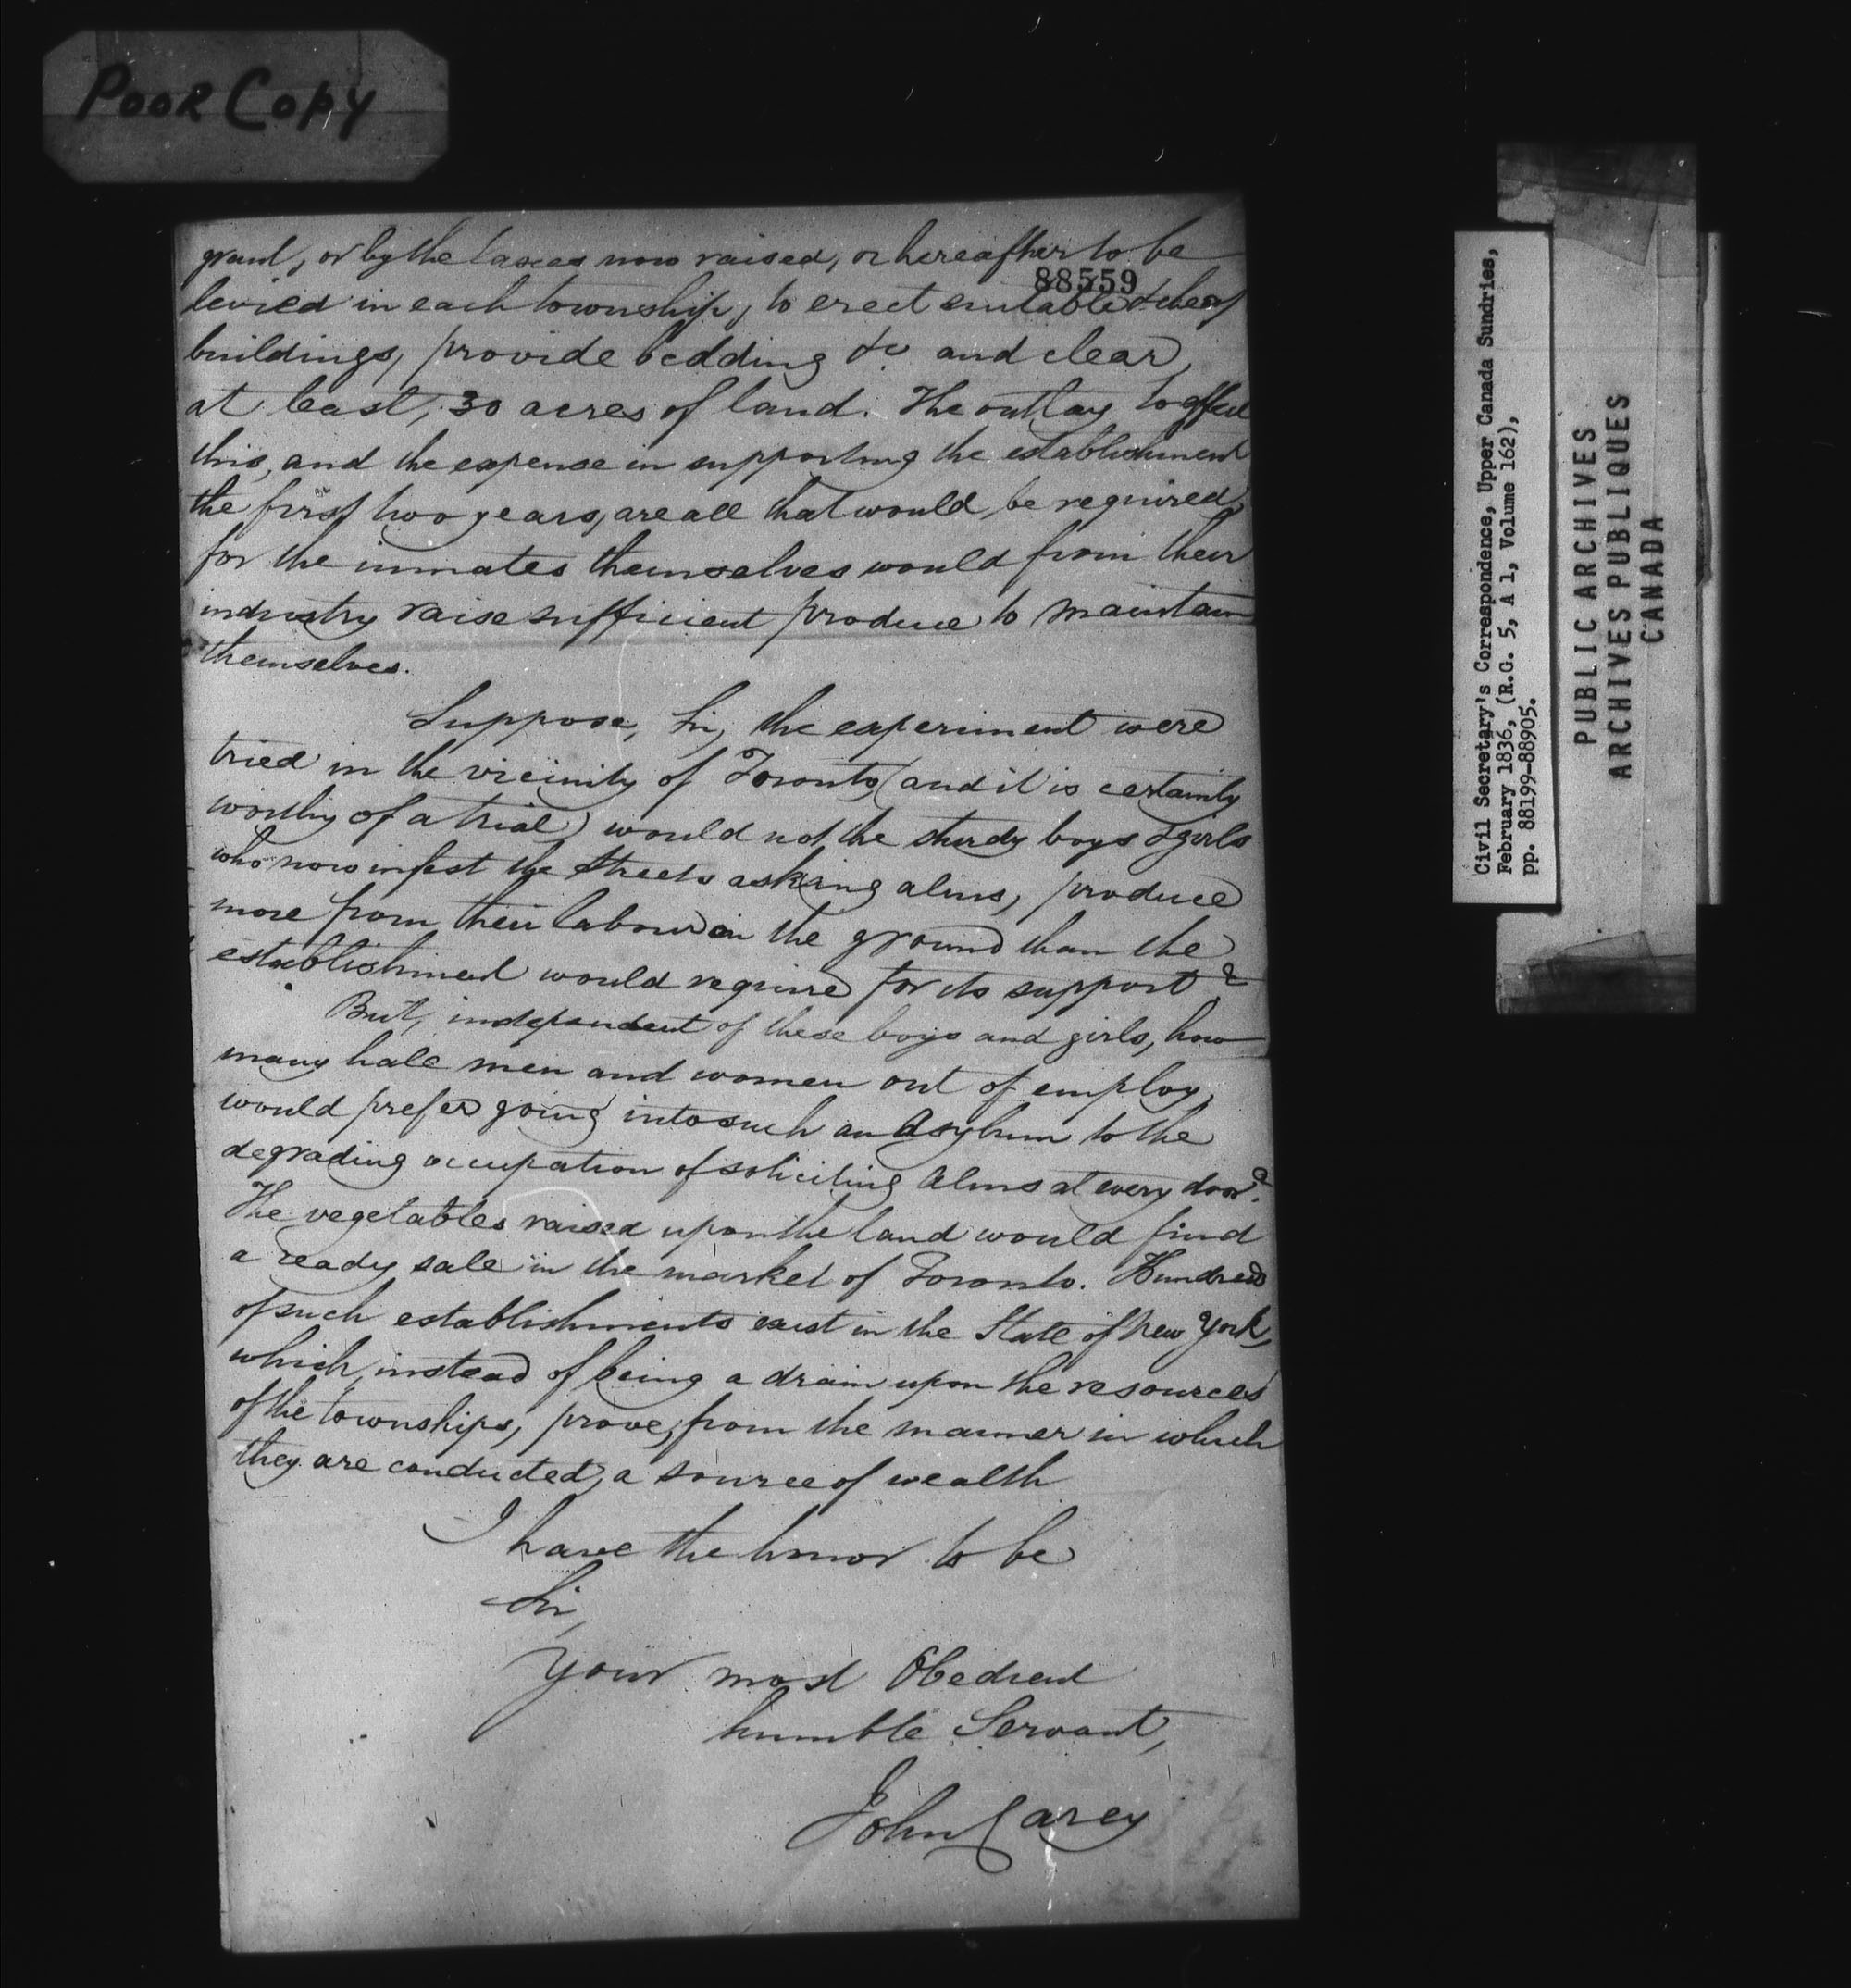 Poor Copy
grant, or by the taxes now raised, or hereafter to be
88559
levied in each township, to erect suitable & cheap
buildings, provide bedding &c and clear,
at least, 30 acres of land. The outlay to effect
this, and the expense in supporting the establishment
the first two years, are all that would be required,
for the inmates themselves would from their
industry raise sufficient produce to maintain
themselves.
Suppose, Sir, the experiment were
tried in the vicinity of Toronto, (and it is certainly
worthy of a trial) would not the sturdy boys & girls
who now infest the streets asking alms, produce
more from their labour on the ground than the
establishment would require for its support?
But, independent of these boys and girls, how
many hale men and women out of employ,
would prefer going into such an Asylum to the
degrading occupation of soliciting alms at every door?
The vegetables raised upon the land would find
a ready sale in the market of Toronto. Hundreds
of such establishments exist in the State of New York,
which, instead of being a drain upon the resources
of the townships, prove, from the manner in which
they are conducted, a source of wealth
I have the honor to be
Sir,
Your most Obedient
humble Servant,
John Carey
Civil Secretary's Correspondence, Upper Canada Sundries,
February 1836, (R.G. 5, A 1, Volume 162),
pp. 88199-88905.
PUBLIC ARCHIVES
ARCHIVES PUBLIQUES
CANADA